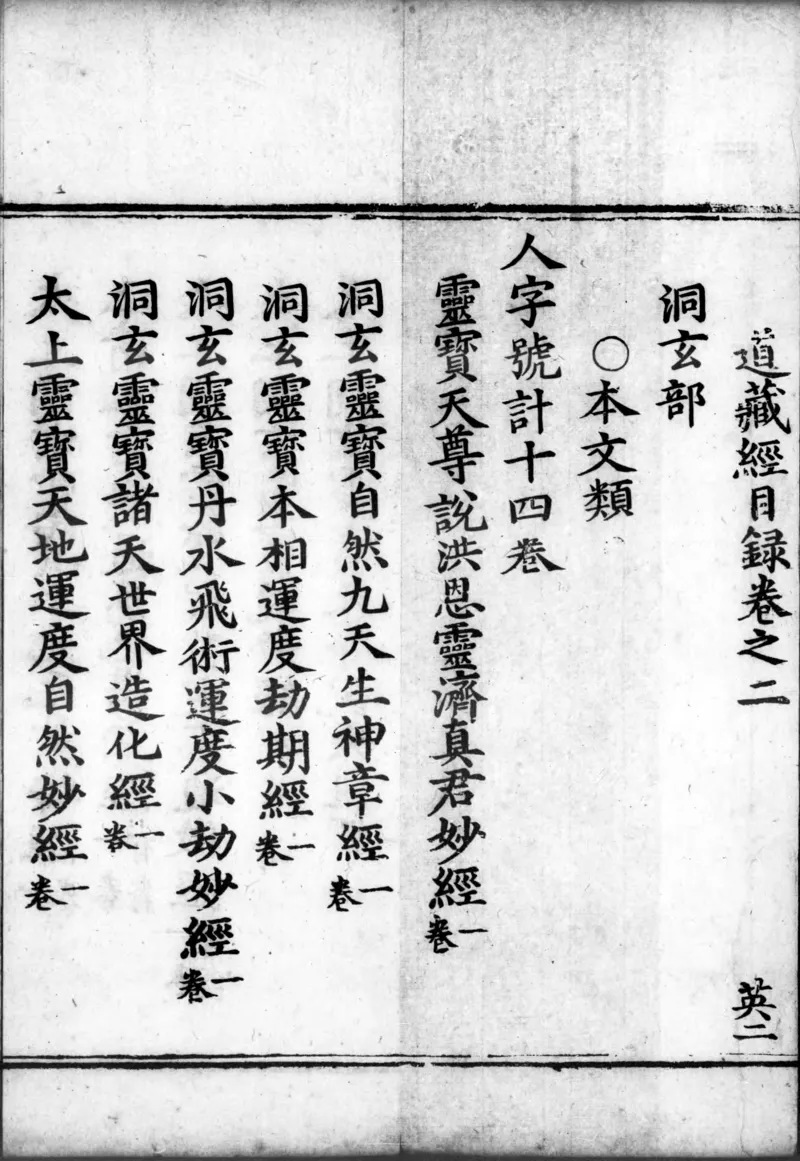 道藏經目録卷之二 英二
洞玄部
○本文類
人字號計十四卷
靈寶天尊說洪恩靈濟真君妙經一卷
洞玄靈寶自然九天生神章經一卷
洞玄靈寶本相運度劫期經一卷
洞玄靈寶丹水飛術運度小劫妙經一卷
洞玄靈寶諸天世界造化經一卷
太上靈寶天地運度自然妙經一卷